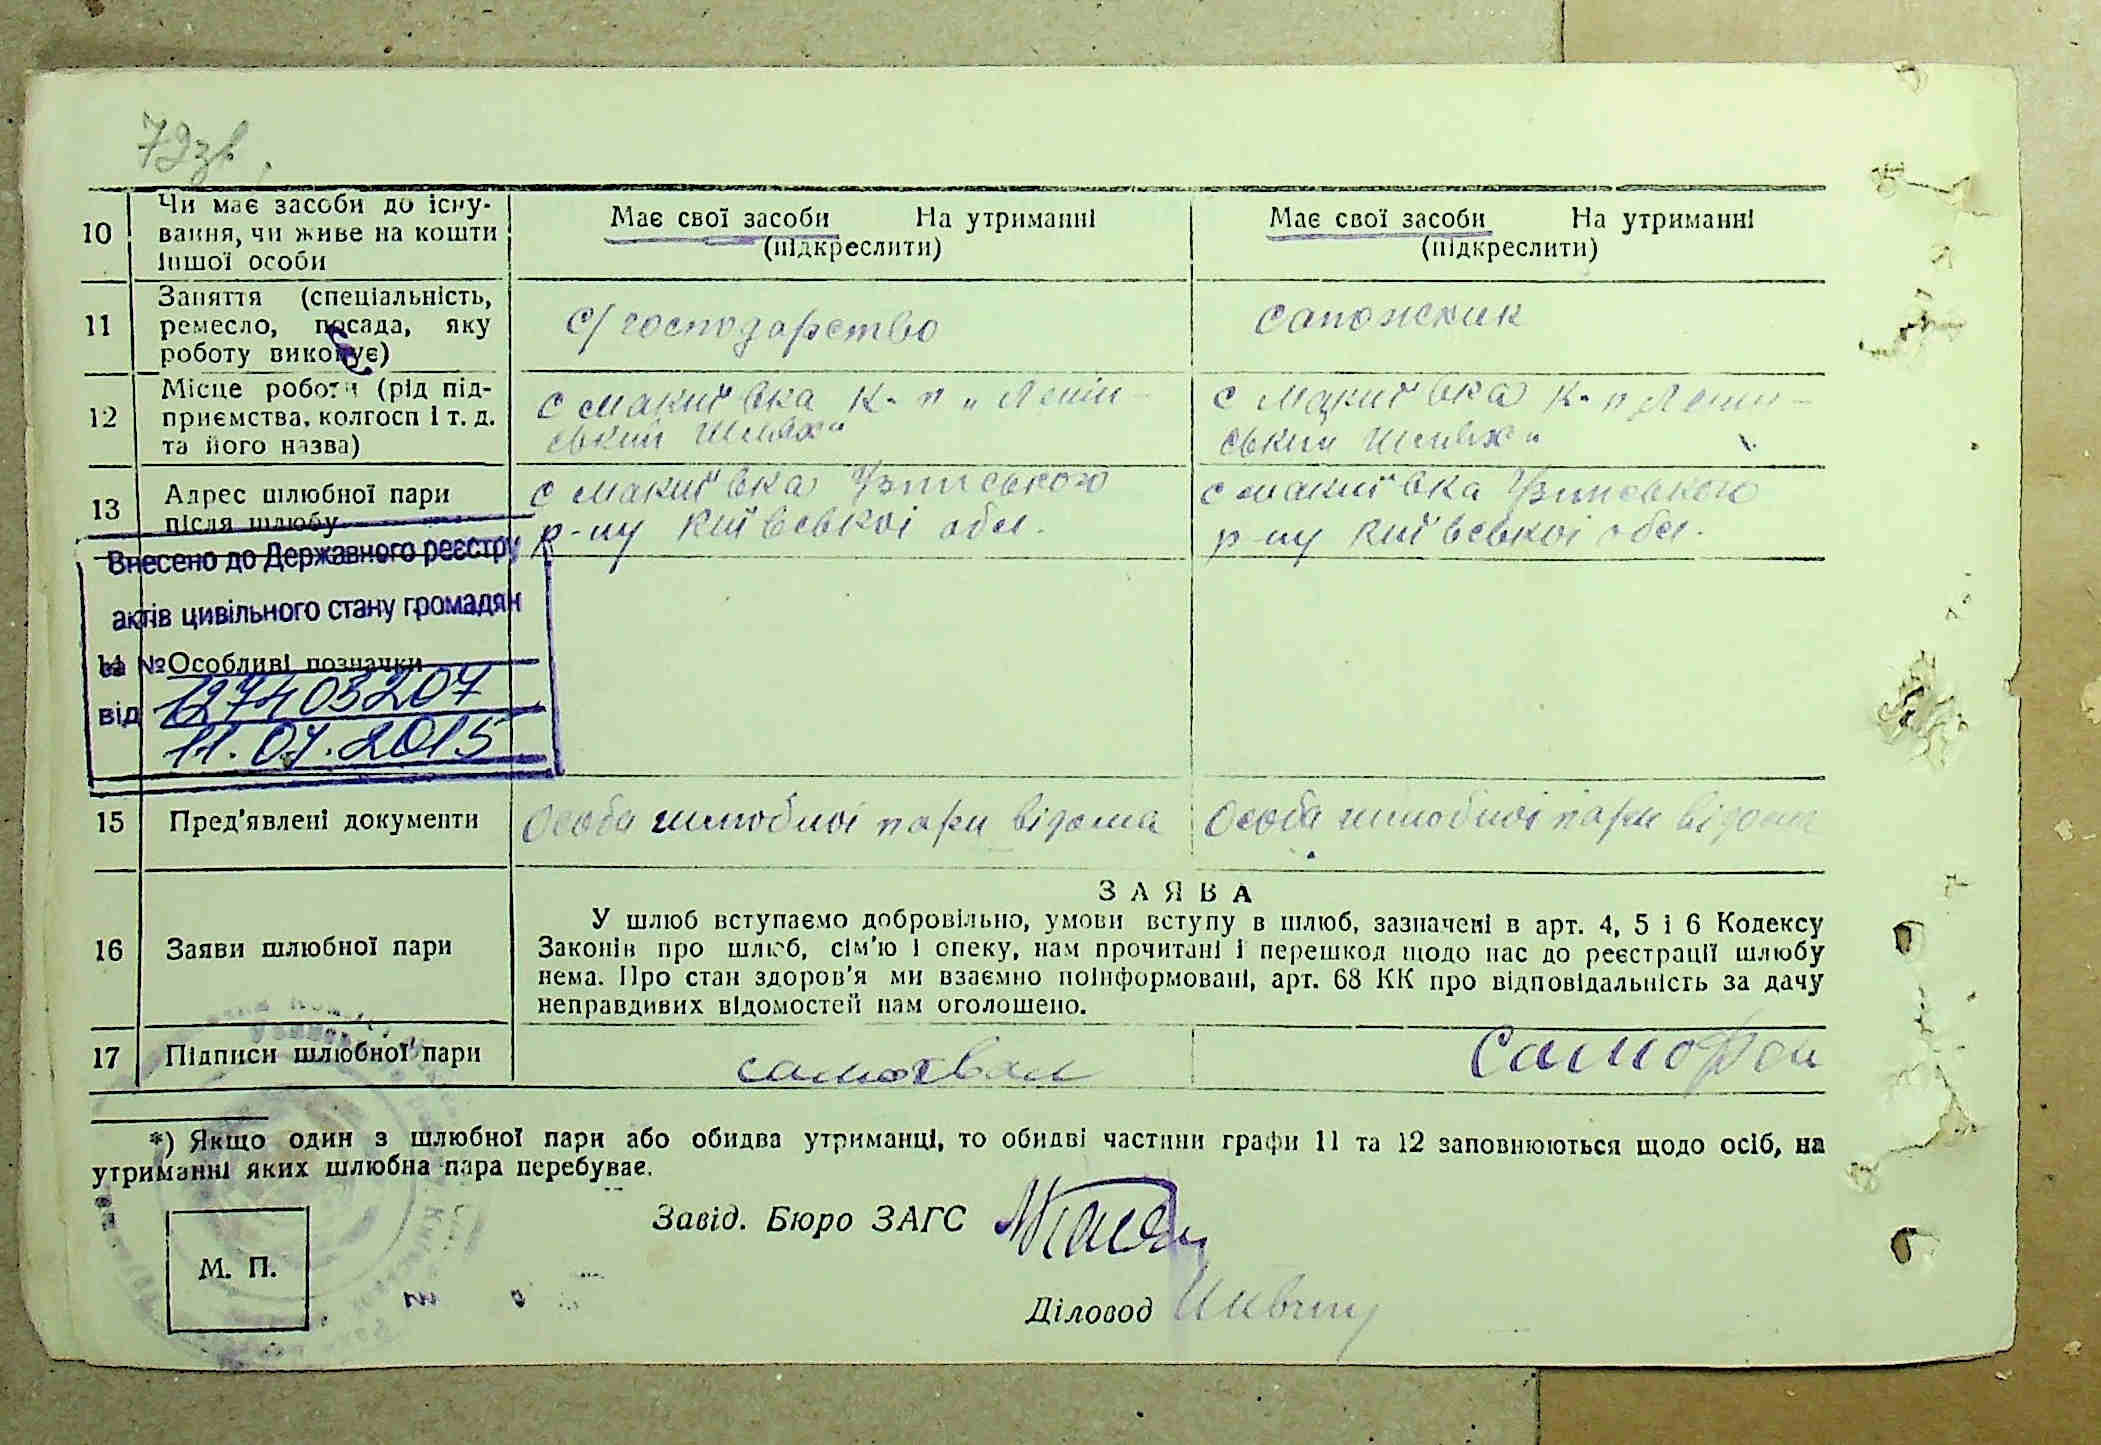 79зв.
10 Чи має засоби до існу-
вання, чи живе на кошти
іншої особи
Має свої засоби На утриманні
(підкреслити)
Має свої засоби На утриманні
(підкреслити)
11 Заняття (спеціальність,
ремесло, посада, яку
роботу виконує)
с/господарство
сапожник
12 Місце роботи (рід під-
приємства, колгосп і т. д.
та його назва)
с макиївка к-п „Ленін-
ський шлях"
с макиївка к-п „Ленін-
ський шлях"
13 Адрес шлюбної пари
після шлюбу
с макиївка Узинського
р-ну Київської обл.
с макиївка Узинського
р-ну Київської обл.
Внесено до Державного реєстру
актів цивільного стану громадян
14 Особливі позначки
за № 127403207
від 11.07.2015
15 Пред'явлені документи
Особа шлюбної пари відома
Особа шлюбної пари відома
16 Заяви шлюбної пари
ЗАЯВА
У шлюб вступаємо добровільно, умови вступу в шлюб, зазначені в арт. 4, 5 і 6 Кодексу
Законів про шлюб, сім'ю і опеку, нам прочитані і перешкод щодо нас до реєстрації шлюбу
нема. Про стан здоров'я ми взаємно поінформовані, арт. 68 КК про відповідальність за дачу
неправдивих відомостей нам оголошено.
17 Підписи шлюбної пари
самохвал
*) Якщо один з шлюбної пари або обидва утриманці, то обидві частини графи 11 та 12 заповнюються щодо осіб, на
утриманні яких шлюбна пара перебуває.
Завід. Бюро ЗАГС
М. П.
Діловод